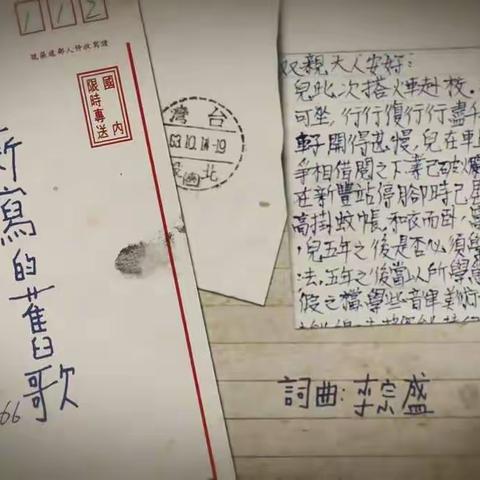 112
號區遞郵人件收寫請
國內
限時專送
新寫的舊歌
66
灣台
63.10.14-19
北
双親大人安好:
兒此次搭火車赴校.
可坐,行行復行行盡千
車子開得甚慢,兒在車上
爭相借閱之下業已破爛
在新豐站停腳時已
高掛蚊帳,和衣而臥,
,兒五年之後是否必須
法,五年之後當以所學
假之檔,學些音樂美術
詞曲:李宗盛